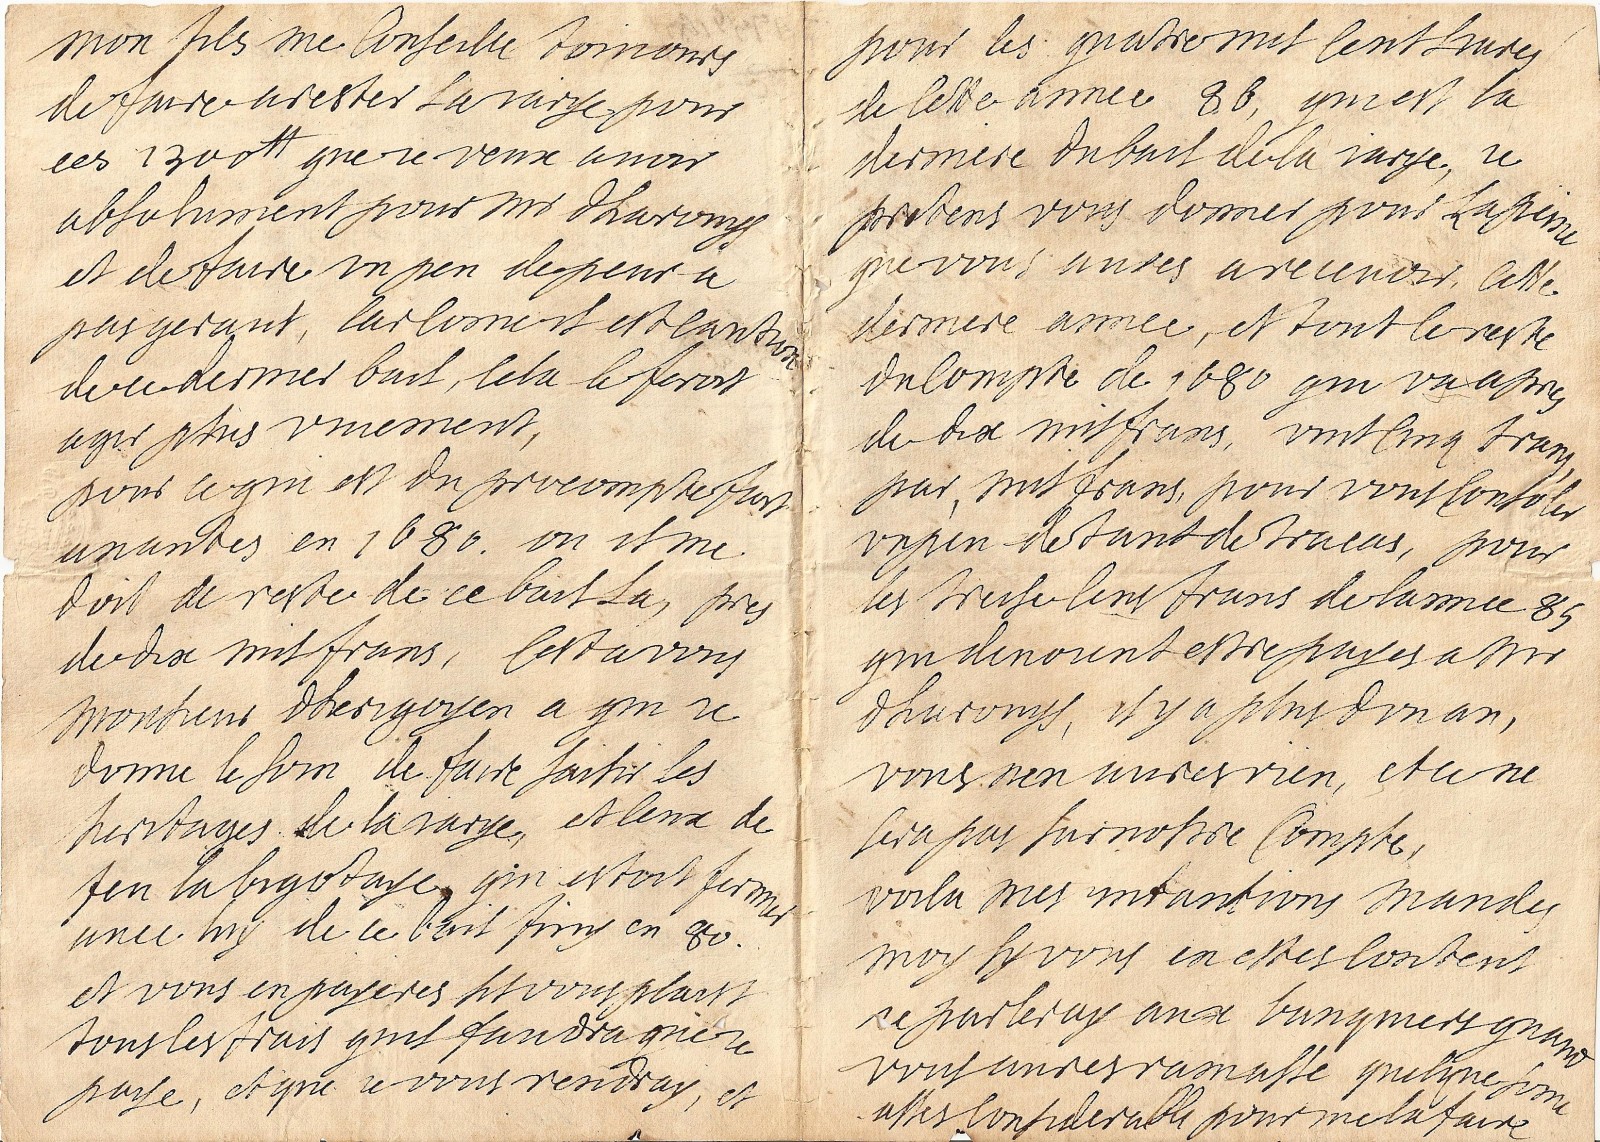 mon fils me Conseille toiuours
de faire arester La rarye pour
ces 1300tt que ie veux auoir
absolument pour Mr dharouys
et de faire vn peu de peur a
pasgerant, Car Comme il est Caution
de ce dernier bail, Cela le feroit
agir plus viuement,
pour ce qui est du precompte fait
a nantes en 1680. ou il me
doit de reste de ce bail La, pres
de dix mil frans, C'est a vous
Monsieur dherigoyen a qui ie
donne le soin de faire saisir les
heritages de la rarye, et Ceux de
feu la bigotaye, qui estoit fermier
auec luy de ce bail finy en 80.
et vous en payeres sil vous plaist
tous les frais quil faudra que ie
paye, et que ie vous rendray, et
pour les quatre mil Cent liures
de Cette annee 86, qui est la
derniere du bail de la rarye, ie
pretens vous donner pour La peine
que vous aures a receuoir Cette
derniere annee, et tout le reste
du Compte de 1680 qui va a pres
de dix mil frans, vint Cinq frans,
par mil frans, pour vous Consoler
vn peu de tant de tracas, pour
les treise Cens frans de lannee 85
qui deuoient estre payes a Mr
dharouys, il y a plus dun an,
vous nen aures rien, et ce ne
sera pas sur nostre Compte,
voila mes intantions mandes
moy sy vous en estes Content
ie parleray aux banquiers quand
vous aures ramassé quelque somme
asses Considerable pour me la faire